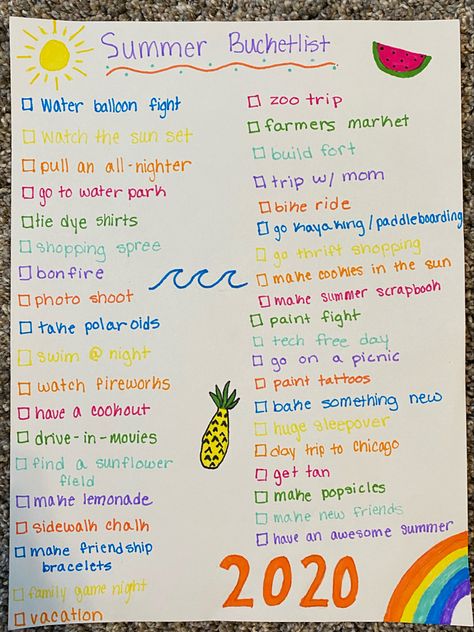 Summer Bucketlist
☐ Water balloon fight
☐ Watch the sun set
☐ pull an all-nighter
☐ go to water park
☐ tie dye shirts
☐ shopping spree
☐ bonfire
☐ photo shoot
☐ take polaroids
☐ swim @ night
☐ watch fireworks
☐ have a cookout
☐ drive-in-movies
☐ find a sunflower
field
☐ make lemonade
☐ sidewalk chalk
☐ make friendship
bracelets
☐ family game night
☐ vacation
☐ zoo trip
☐ farmers market
☐ build fort
☐ trip w/ mom
☐ bike ride
☐ go kayaking/paddleboarding
☐ go thrift shopping
☐ make cookies in the sun
☐ make summer scrapbook
☐ paint fight
☐ tech free day
☐ go on a picnic
☐ paint tattoos
☐ bake something new
☐ huge sleepover
☐ day trip to Chicago
☐ get tan
☐ make popsicles
☐ make new friends
☐ have an awesome summer
2020